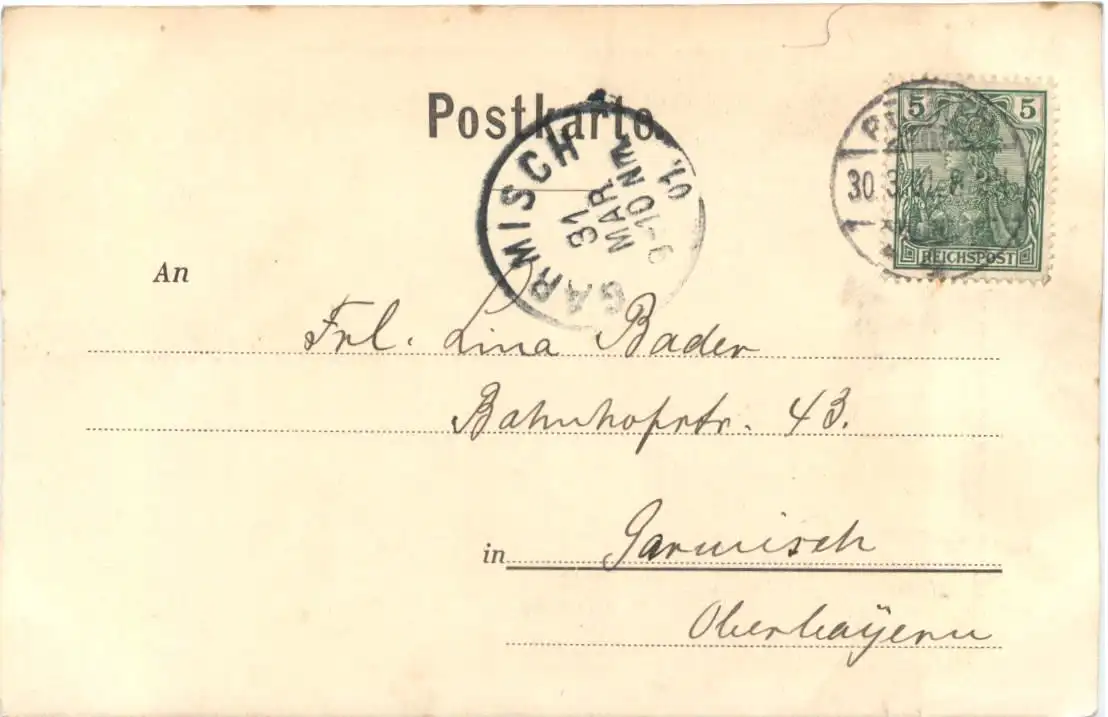 Postkarte
5 5
REICHSPOST
30.3.
GARMISCH
31
MAR
9-10 NM.
01.
An
Frl. Lina Bader
Bahnhofstr. 43.
in Garmisch
Oberbayern